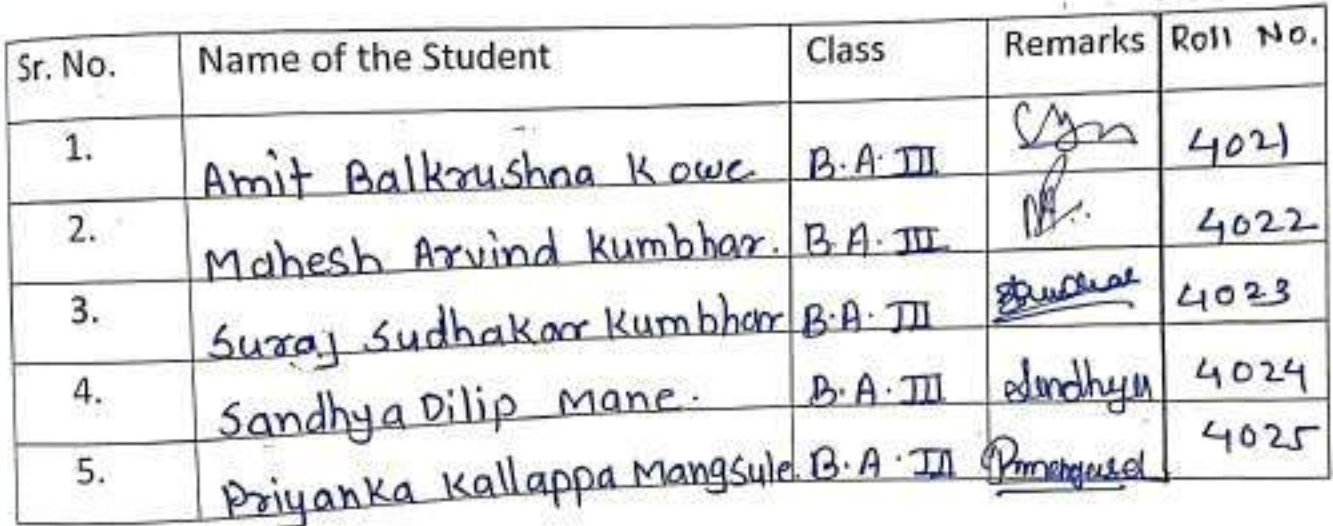 Sr. No. Name of the Student Class Remarks Roll No.
1. Amit Balkrushna Kowe B.A.III 4021
2. Mahesh Arvind Kumbhar. B.A.III 4022
3. Suraj Sudhakar Kumbhar B.A.III 4023
4. Sandhya Dilip Mane. B.A.III Sandhya 4024
5. Priyanka Kallappa Mangsule. B.A.III 4025